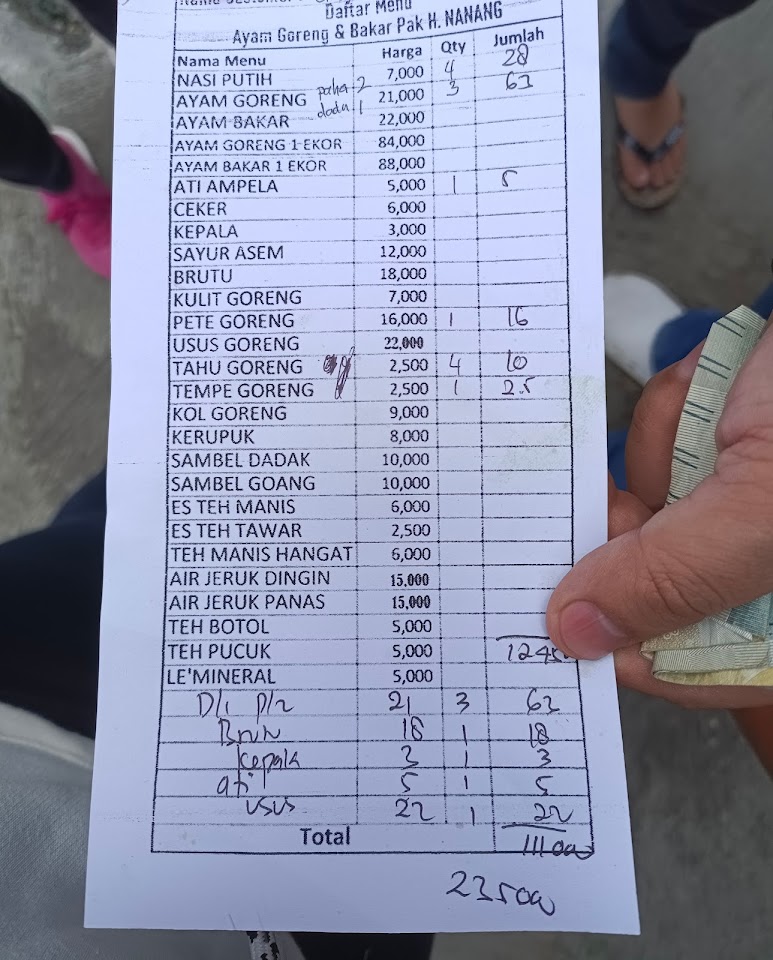 Daftar Menu
Ayam Goreng & Bakar Pak H. NANANG
Nama Menu Harga Qty Jumlah
NASI PUTIH 7,000 4 28
AYAM GORENG paha 2 dada 1 21,000 3 63
AYAM BAKAR 22,000
AYAM GORENG 1 EKOR 84,000
AYAM BAKAR 1 EKOR 88,000
ATI AMPELA 5,000 1 5
CEKER 6,000
KEPALA 3,000
SAYUR ASEM 12,000
BRUTU 18,000
KULIT GORENG 7,000
PETE GORENG 16,000 1 16
USUS GORENG 22,000
TAHU GORENG 2,500 4 10
TEMPE GORENG 2,500 1 2.5
KOL GORENG 9,000
KERUPUK 8,000
SAMBEL DADAK 10,000
SAMBEL GOANG 10,000
ES TEH MANIS 6,000
ES TEH TAWAR 2,500
TEH MANIS HANGAT 6,000
AIR JERUK DINGIN 15,000
AIR JERUK PANAS 15,000
TEH BOTOL 5,000
TEH PUCUK 5,000 1245
LE'MINERAL 5,000
D/1 P/2 21 3 63
18 1 18
Kepala 3 1 3
ati 5 1 5
usus 22 1 22
Total 111 00
235 00